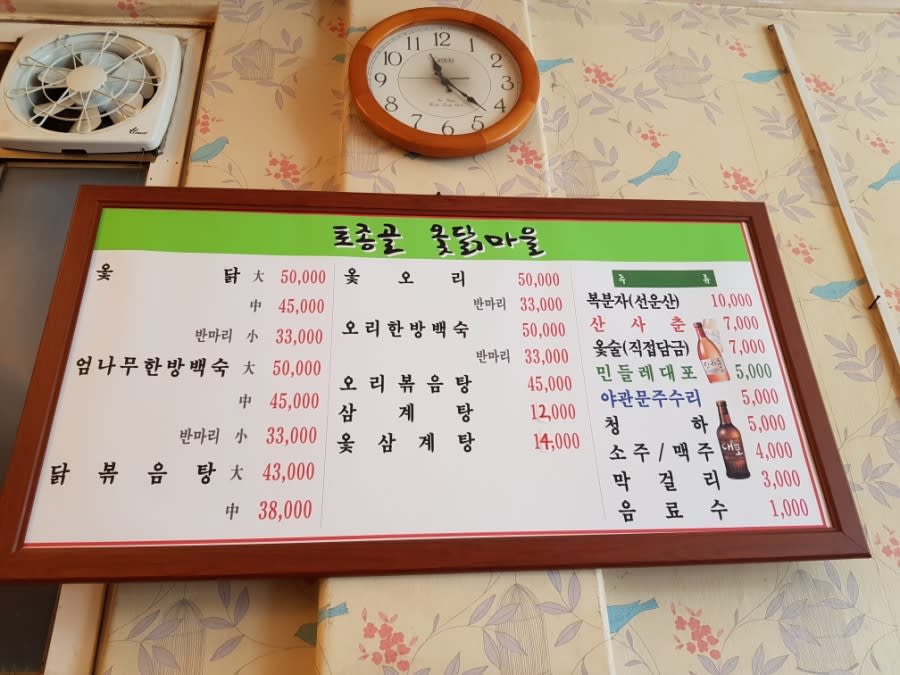 12
1
2
3
4
5
6
7
8
9
10
11
토종골 옻닭마을
옻 닭 大 50,000
中 45,000
반마리 小 33,000
엄나무한방백숙 大 50,000
中 45,000
반마리 小 33,000
닭볶음탕 大 43,000
中 38,000
옻 오 리 50,000
반마리 33,000
오리한방백숙 50,000
반마리 33,000
오리볶음탕 45,000
삼 계 탕 12,000
옻삼계탕 14,000
주 류
복분자(선운산) 10,000
산 사 춘 7,000
옻술(직접담금) 7,000
민들레대포 5,000
야관문주수리 5,000
청 하 5,000
소주/맥주 4,000
막 걸 리 3,000
음 료 수 1,000
대포